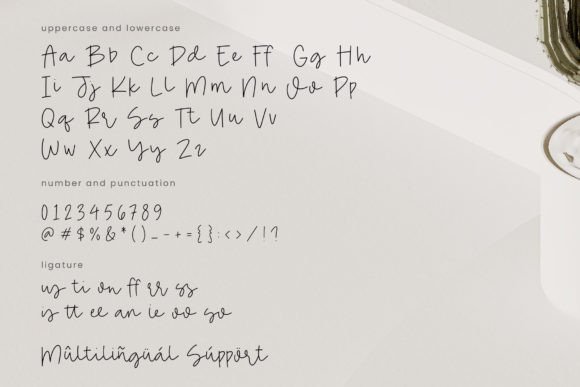 uppercase and lowercase
Aa Bb Cc Dd Ee Ff Gg Hh
Ii Jj Kk Ll Mm Nn Oo Pp
Qq Rr Ss Tt Uu Vv
Ww Xx Yy Zz
number and punctuation
0123456789
@ # $ % & * ( ) _ - + = { } : < > / ! ?
ligature
us ti on ff rr ss
is tt ee an ie oo so
Mûltilïñgüál Súppört